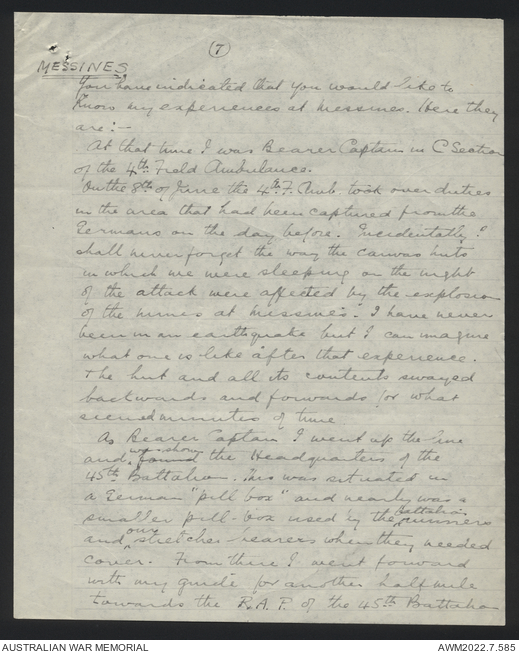 (7)
MESSINES.
You have indicated that you would like to
know my experiences at Messines. Here they
are:-
At that time I was Bearer Captain in C Section
of the 4th Field Ambulance.
On the 8th of June the 4th F. Amb. took over duties
in the area that had been captured from the
Germans on the day before. Incidentally I
shall never forget the way the canvas huts
in which we were sleeping on the night
of the attack were affected by the explosion
of the mines at Messines. I have never
been in an earthquake but I can imagine
what one is like after that experience.
The hut and all its contents swayed
backwards and forwards for what
seemed minutes of time
As Bearer Captain I went up the line
and was shown found the Headquarters of the
45th Battalion. This was situated in
a German "pill box" and nearby was a
smaller pill-box used by the Battalion runners
and our stretcher bearers when they needed
cover. From there I went forward
with my guide for another half mile
towards the R.A.P. of the 45th Battalion
AUSTRALIAN WAR MEMORIAL
AWM2022.7.585